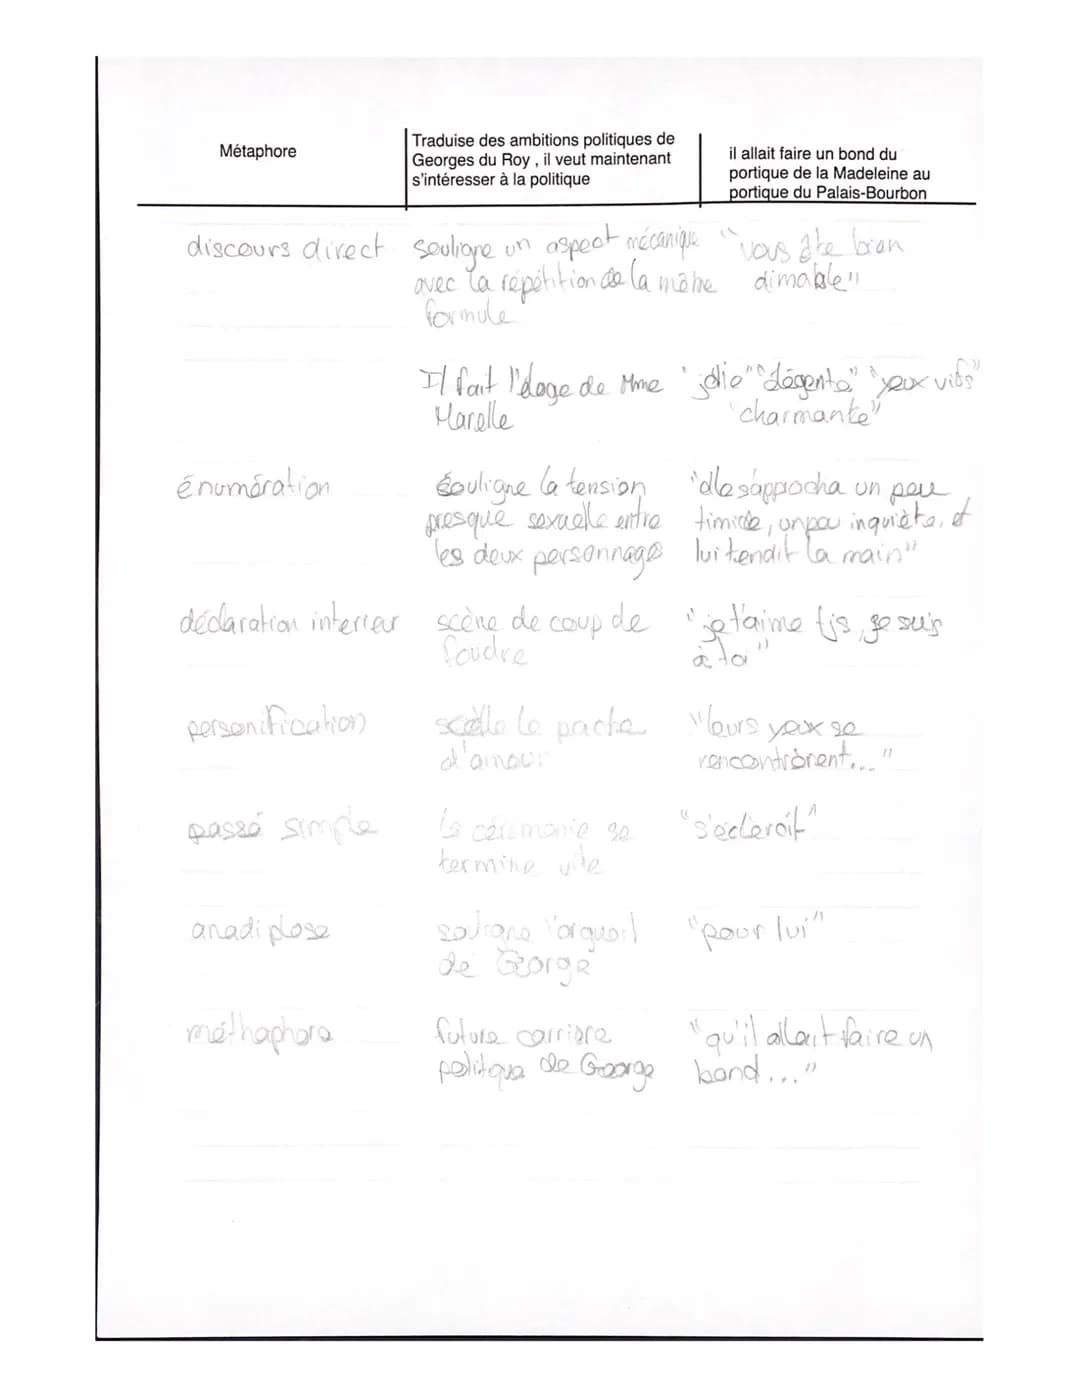 Métaphore
Traduise des ambitions politiques de
Georges du Roy , il veut maintenant
s'intéresser à la politique
il allait faire un bond du
portique de la Madeleine au
portique du Palais-Bourbon
discours direct
souligne un aspect mécanique
avec la répétition de la même
formule
"vous ête bien
aimable"
Il fait l'éloge de Mme
Marelle
"jolie" "élégente" "yeux vifs"
"charmante"
énumération
souligne la tension
presque sexuelle entre
les deux personnages
"elle s'approcha un peu
timide, un peu inquiète, et
lui tendit la main"
déclaration interieur
scène de coup de
foudre
"je t'aime tjs, je suis
à toi"
personification
scelle le pacte
d'amour
"leurs yeux se
rencontrèrent..."
passé simple
la cérémonie se
termine vite
anadiplose
souligne l'orgueil
de George
"pour lui"
méthaphore
future carrière
politque de George
"qu'il allait faire un
bond..."